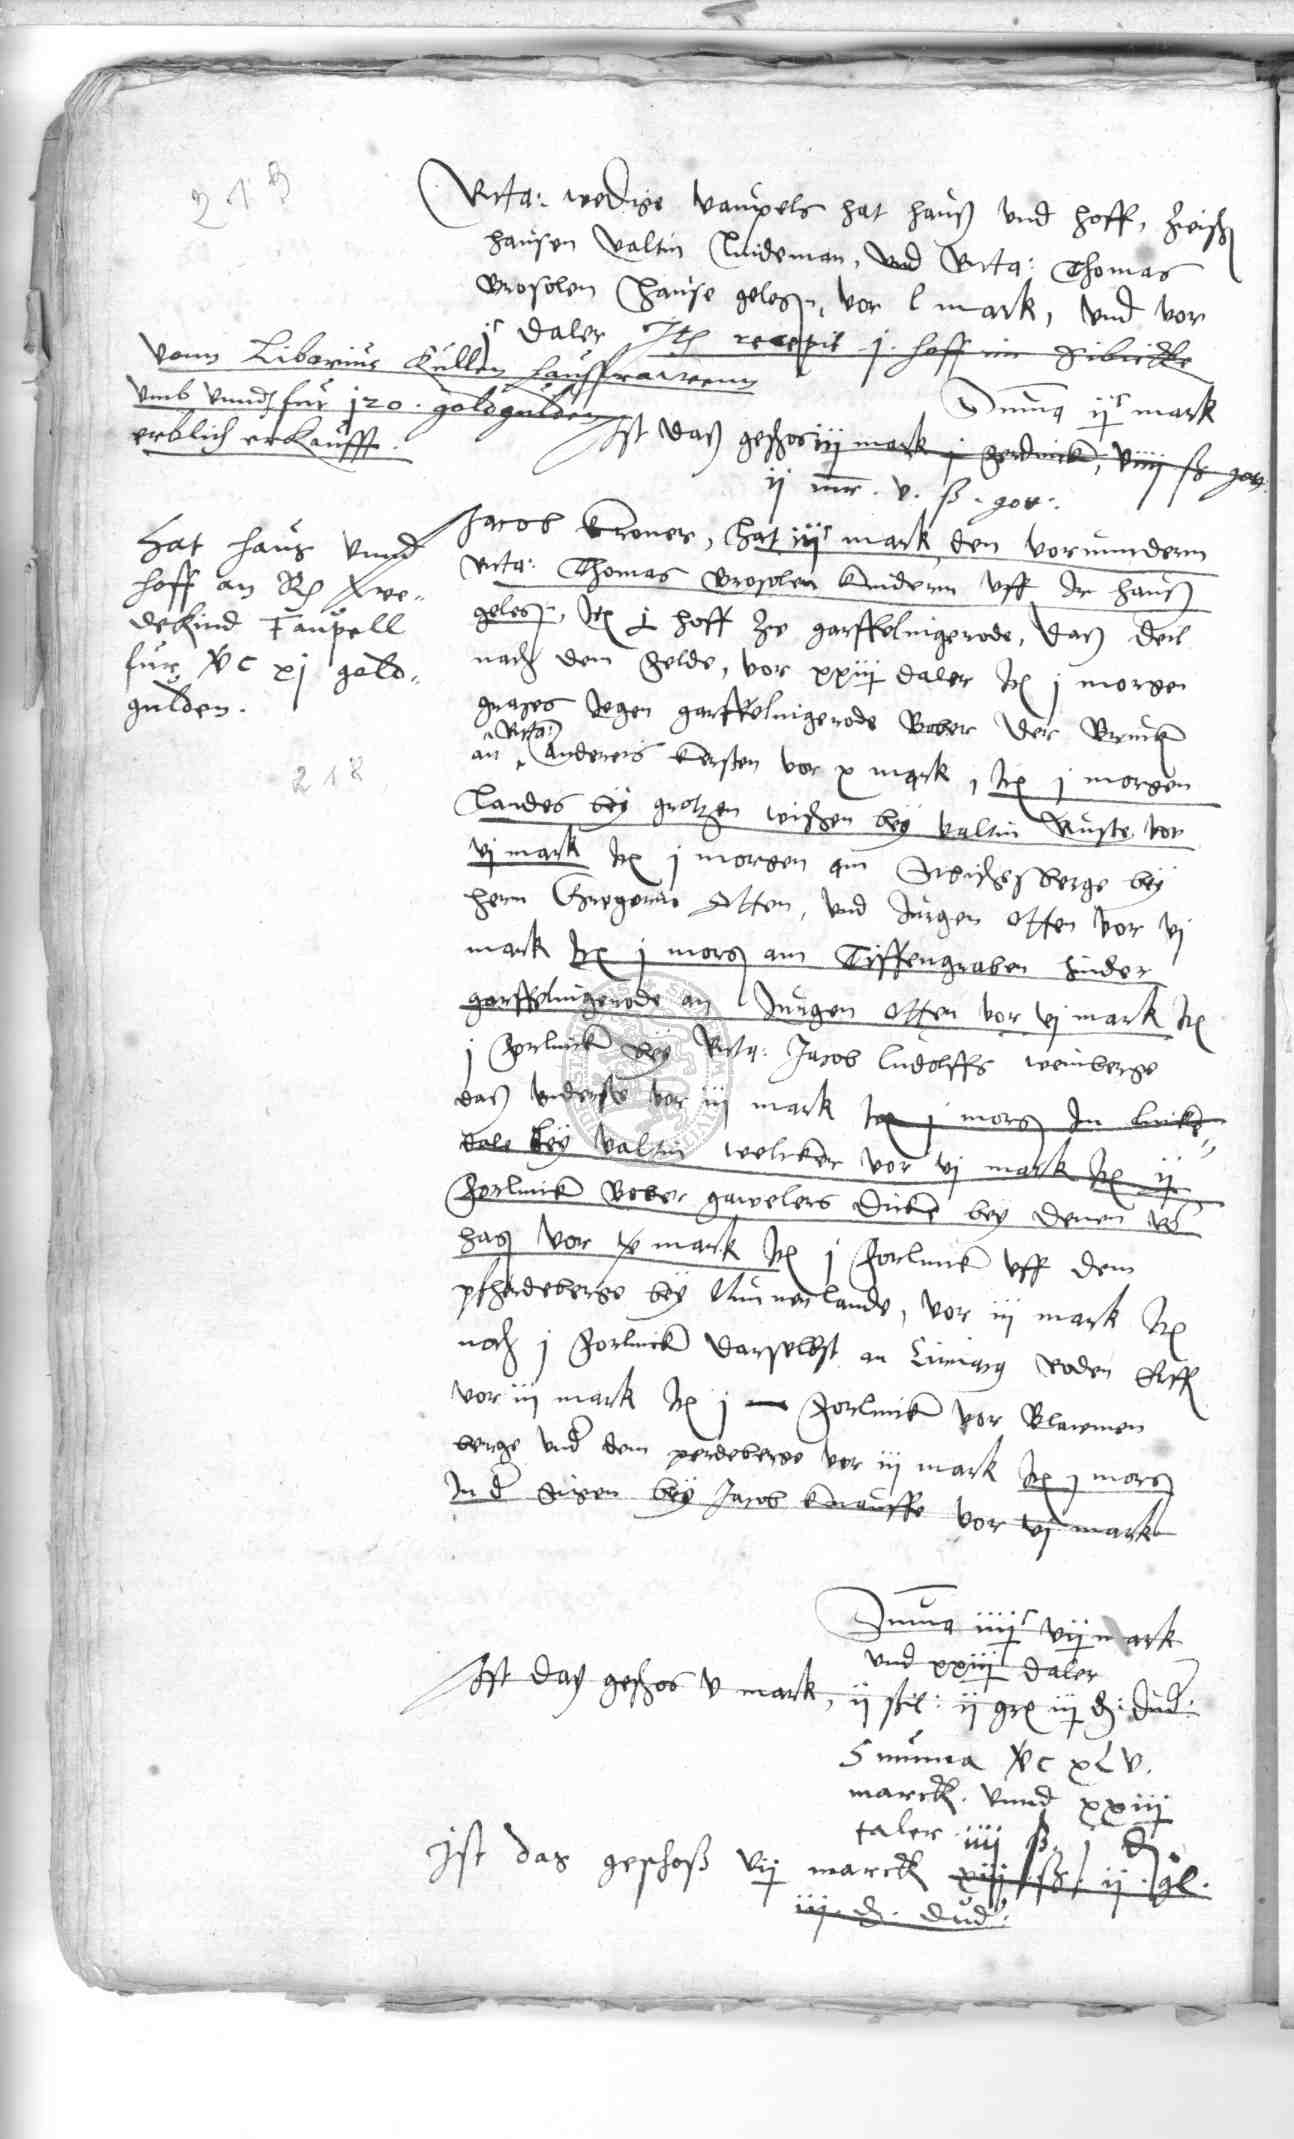 215
Rcta: wedige vaupels hat hauß vnd hoff, zwischen
hausen valtin lindeman, vnd Rcta: Thomas
vrosolen hause gelegen, vor l mark, vnd vor
jc daler Ith recepit j. hoff im
vonn Liborius Küllen haussfrawenn
vmb vnnd für j20. goldgulden
erblich erkaufft.
Summa ijc mark
Ist daß geschos iij mark j ferdinck, viiij ß gor:
ij mr. v. ß. gor:
Hat haus vnnd
hoff an We-
dekind Faupell
für vc xj gold-
gulden.
218
Jacob kroner, hat iijc mark den vormundern
Rcta: Thomas vrosolen kindern vff Ir hauß
gelegen, Itē j hoff zw garffelingerode, daß deil
nach dem felde, vor xxiij daler Itē j morgen
grases jegen garffelingerode bober der Brinck
an Rcta: anderers kersten vor x mark, Itē j morgen
landes bey grotzen wischen bey valtin Ruste vor
vj mark Itē j morgen am berge bey
hern Gregorius Otten, vnd Jurgen Otten vor vj
mark Itē j morg am Tiffengraben hinder
garffelingerode an Jurgen Otten vor vj mark Itē
j forlinck bey Rcta: Jacob ludolffs weinberge
daß vnderste vor iij mark Itē j morg In
dale bey valtin welcker vor vj mark Itē ij
forlinck bober gawelers dicke bey denen vō
hag vor mark Itē j forlinck vff dem
pferdeberge bey Nunnen lande, vor iij mark Itē
noch j forlinck darselbst an roden
vor iij mark Itē j forlinck vor Blawmen
berge vnd dem perdeberge vor iij mark Itē j morg
In d bey Jacob knauffe vor vj mark
Summa iiijc vij mark
vnd xxiij daler
Ist daß geschos v mark, ij ßil: ij gr iij d: dud:
Summa vc xlv.
marck. vnnd xxiij
taler iiij ß. j d
Ist das geschoß vij marck xiij ß ij gl.
iij. d. dud: